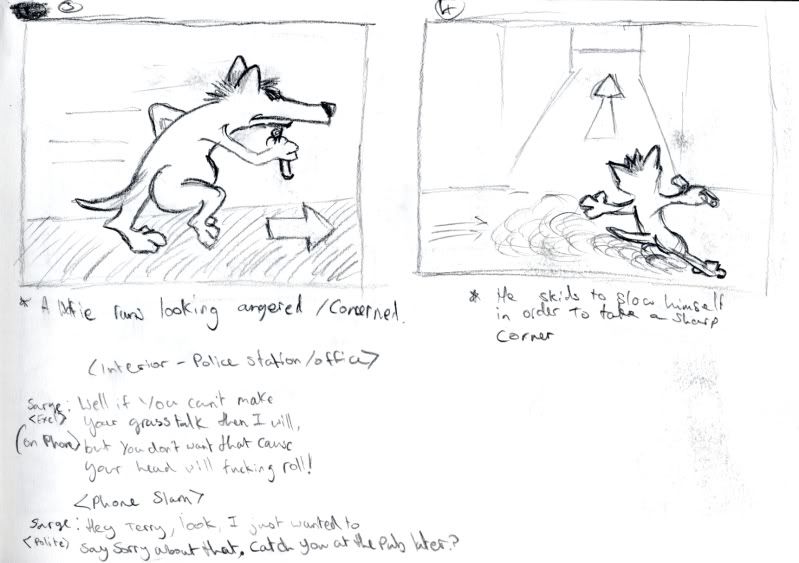 3
4
* runs looking angered / Concerned.
* He skids to slow himself
in order to take a sharp
corner
<Interior - Police station/office>
Sarge: Well if You can't make
Your grass talk then I will,
(on Phone) but You don't want that cause
Your head will fucking roll!
<Phone Slam>
Sarge: Hey Terry, look, I just wanted to
<Polite> Say Sorry about that, Catch you at the Pub later?